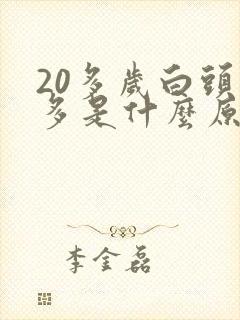 20多歲白頭
多是什麼原
李金磊